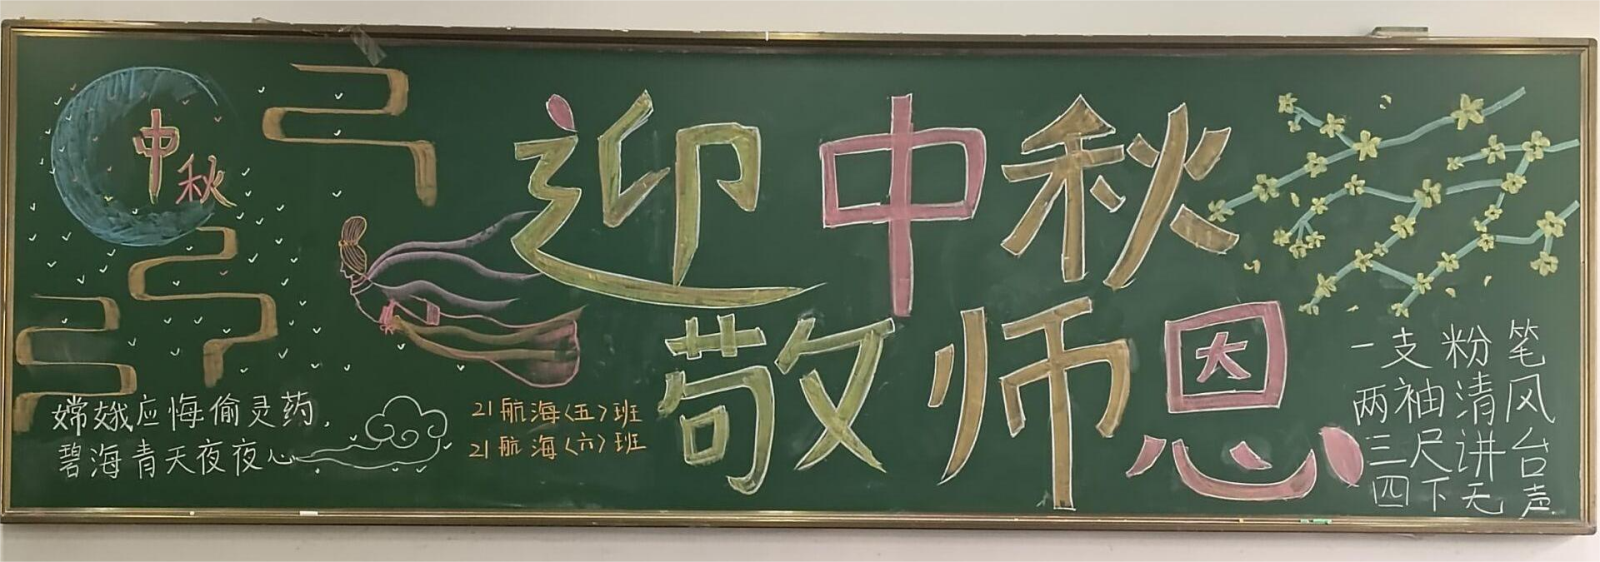 中秋
迎中秋
敬师恩
嫦娥应悔偷灵药,
碧海青天夜夜心
21航海〈五〉班
21航海〈六〉班
一支粉笔
两袖清风
三尺讲台
四下无声